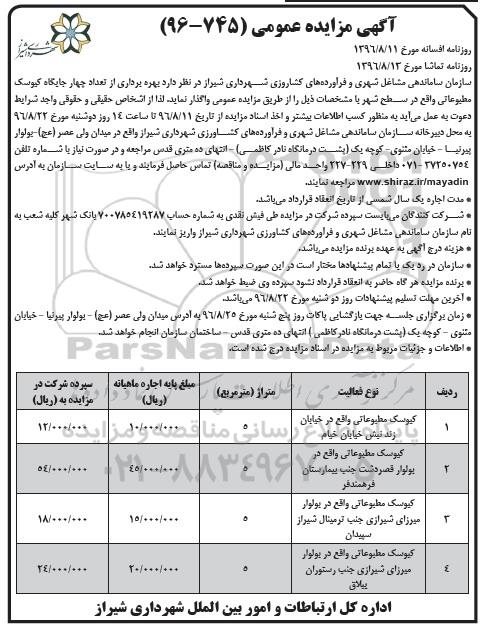 آگهی مزایده عمومی (۷۴۵-۹۶)
روزنامه افسانه مورخ ۱۳۹۶/۸/۱۱
روزنامه تماشا مورخ ۱۳۹۶/۸/۱۳
سازمان ساماندهی مشاغل شهری و فرآورده‌های کشاورزی شهرداری شیراز در نظر دارد بهره برداری از تعداد چهار جایگاه کیوسک
مطبوعاتی واقع در سطح شهر با مشخصات ذیل را از طریق مزایده عمومی واگذار نماید. لذا از اشخاص حقیقی و حقوقی واجد شرایط
دعوت به عمل می‌آید به منظور کسب اطلاعات بیشتر و اخذ اسناد مزایده از تاریخ ۹۶/۸/۱۱ تا ساعت ۱۴ روز دوشنبه مورخ ۹۶/۸/۲۲
به محل دبیرخانه سازمان ساماندهی مشاغل شهری و فرآورده‌های کشاورزی شهرداری شیراز واقع در میدان ولی عصر (عج)-بولوار
پیرنیا - خیابان مثنوی- کوچه یک (پشت درمانگاه نادر کاظمی) - انتهای ده متری قدس مراجعه و در صورت نیاز با شماره تلفن
۳۷۲۵۰۷۵۴-۰۷۱ داخلی ۲۲۹-۲۲۷ واحد مالی (مزایده و مناقصه) تماس حاصل فرمایند و یا به سایت سازمان به آدرس
www.shiraz.ir/mayadin مراجعه نمایند.
* مدت اجاره یک سال شمسی از تاریخ انعقاد قرارداد می‌باشد.
* شرکت کنندگان می‌بایست سپرده شرکت در مزایده طی فیش نقدی به شماره حساب ۷۰۰۷۸۵۴۱۹۲۸۷ بانک شهر کلیه شعب به
نام سازمان ساماندهی مشاغل شهری و فرآورده‌های کشاورزی شهرداری شیراز واریز نمایند.
* هزینه درج آگهی به عهده برنده مزایده می‌باشد.
* سازمان در رد یک یا تمام پیشنهادها مختار است در این صورت سپرده‌ها مسترد خواهد شد.
* برنده مزایده هر گاه حاضر به انعقاد قرارداد نشود سپرده وی ضبط خواهد شد.
* آخرین مهلت تسلیم پیشنهادات روز دو شنبه مورخ ۹۶/۸/۲۲ می‌باشد.
* زمان برگزاری جلسه جهت بازگشایی پاکات روز پنج شنبه مورخ ۹۶/۸/۲۵ به آدرس میدان ولی عصر (عج) - بولوار پیرنیا - خیابان
مثنوی - کوچه یک (پشت درمانگاه نادرکاظمی ) انتهای ده متری قدس - ساختمان سازمان انجام خواهد شد.
* اطلاعات و جزئیات مربوط به مزایده در اسناد مزایده درج شده است.
ردیف نوع فعالیت متراژ (مترمربع) مبلغ پایه اجاره ماهیانه (ریال) سپرده شرکت در مزایده به (ریال)
۱ کیوسک مطبوعاتی واقع در خیابان زند نبش خیابان خیام ۵ ۱۰/۰۰۰/۰۰۰ ۱۲/۰۰۰/۰۰۰
۲ کیوسک مطبوعاتی واقع در بولوار قصردشت جنب بیمارستان فرهمندفر ۵ ۴۵/۰۰۰/۰۰۰ ۵۴/۰۰۰/۰۰۰
۳ کیوسک مطبوعاتی واقع در بولوار میرزای شیرازی جنب ترمینال شیراز سپیدان ۵ ۱۵/۰۰۰/۰۰۰ ۱۸/۰۰۰/۰۰۰
۴ کیوسک مطبوعاتی واقع در بولوار میرزای شیرازی جنب رستوران ییلاق ۵ ۲۰/۰۰۰/۰۰۰ ۲۴/۰۰۰/۰۰۰
اداره کل ارتباطات و امور بین الملل شهرداری شیراز